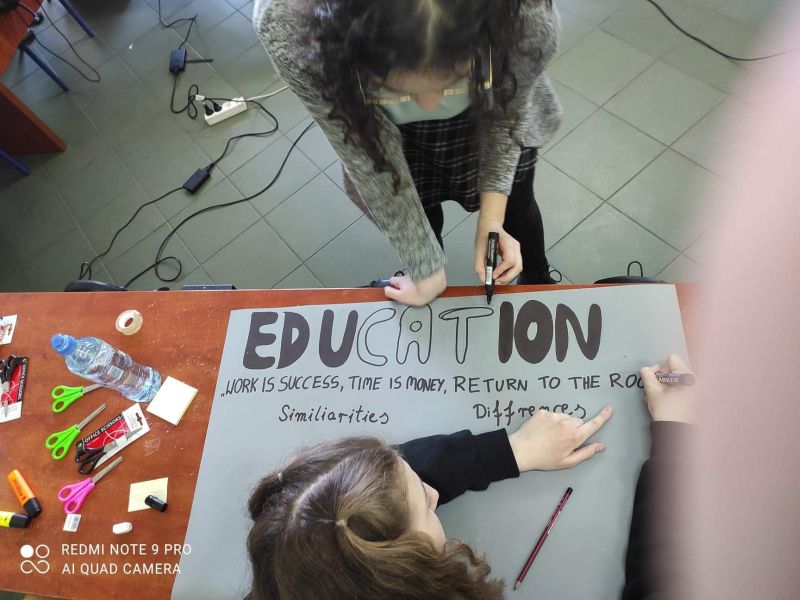 EDUCATION
„WORK IS SUCCESS, TIME IS MONEY, RETURN TO THE ROO
Similiarities Diffrences
OFFICE SCISSORS
MARKER
REDMI NOTE 9 PRO
AI QUAD CAMERA